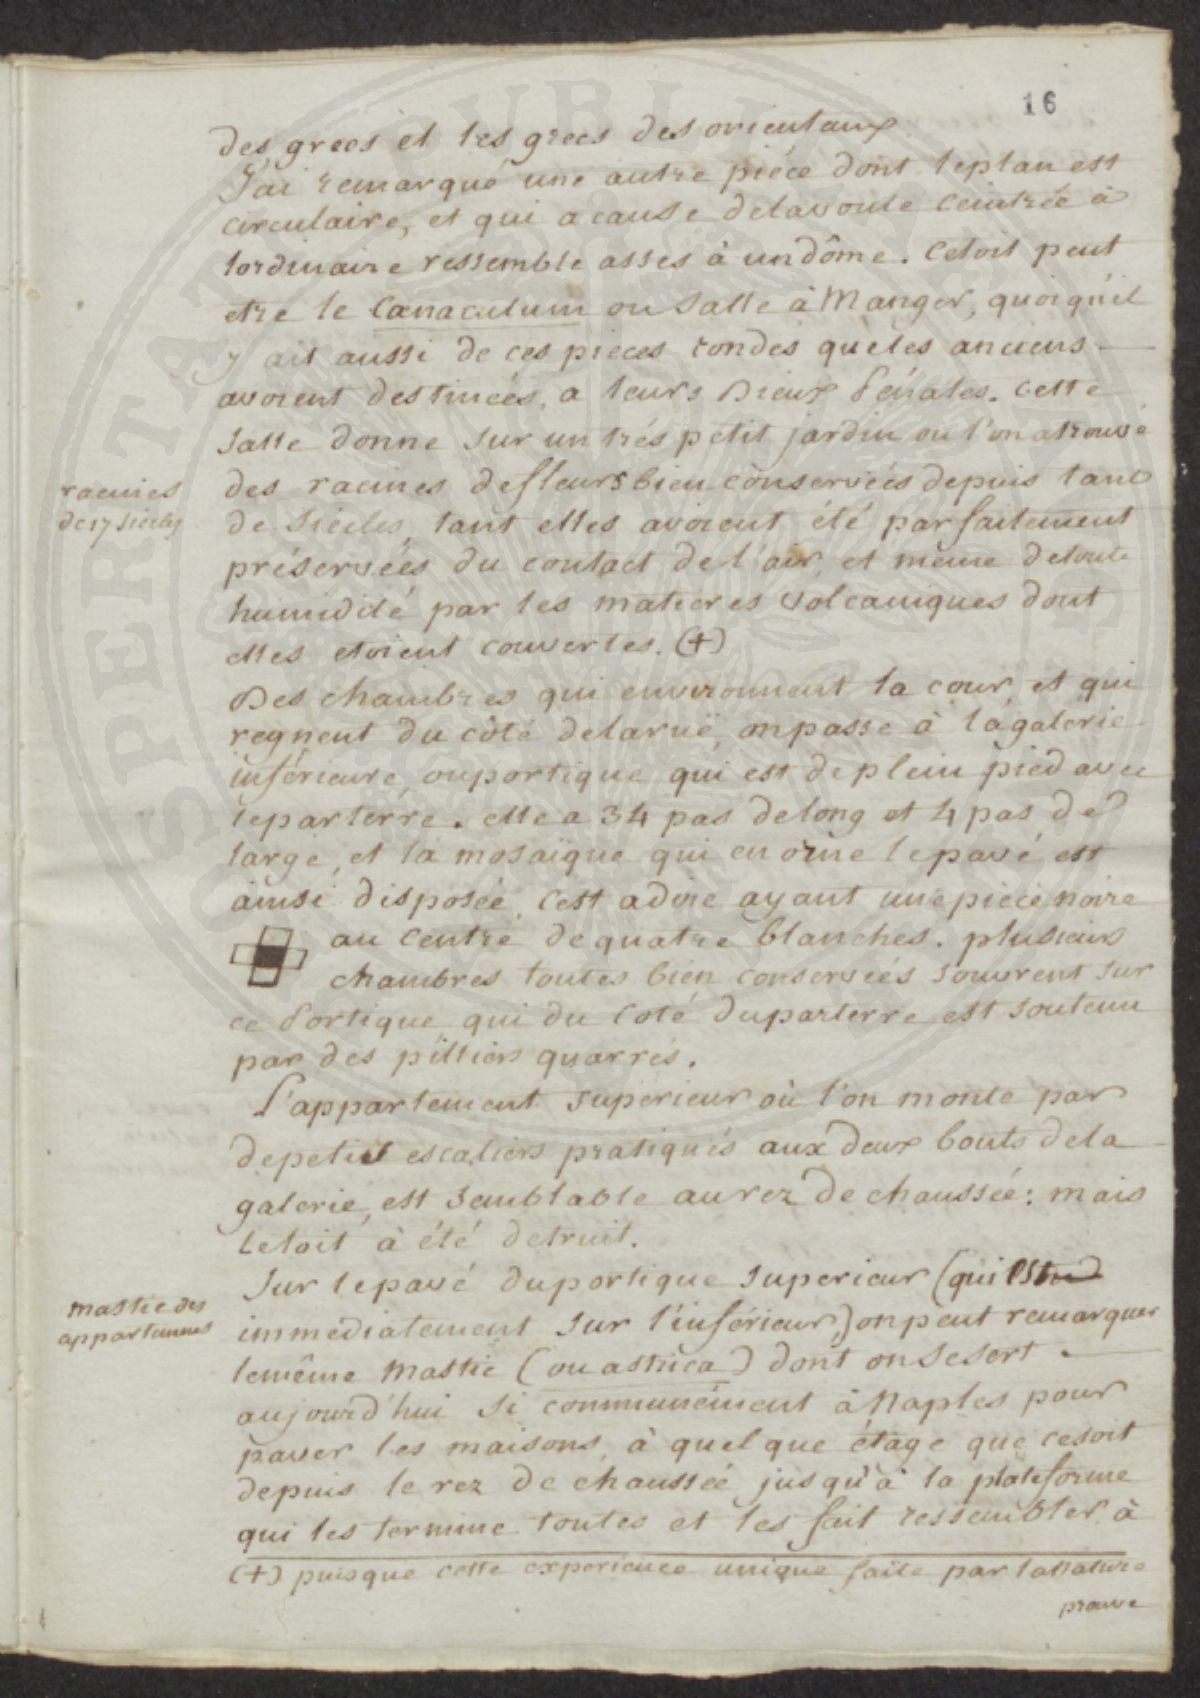 16
des grecs et les grecs des orientaux.
J'ai remarqué une autre piéce dont le plan est
circulaire, et qui a cause de la voute ceintrée à
l'ordinaire ressemble assés à un dôme. C'etoit peut
etre le Cænaculum ou Salle à Manger, quoiqu'il
y ait aussi de ces pieces rondes que les anciens
avoient destinées a leurs Dieux Pénates. Cette
Salle donne sur un trés petit jardin ou l'on a trouvé
racines
de 17 siecles
des racines de fleurs bien conservées depuis tant
de siécles, tant elles avoient été parfaitement
préservées du contact de l'air, et meme de toute
humidité par les matieres volcaniques dont
elles etoient couvertes. (+)
Des chambres qui environnent la cour, et qui
regnent du côté de la ruë, on passe à la galerie
inférieure, ou portique, qui est de plein pied avec
le parterre. elle a 34 pas de long et 4 pas de
large, et la mosaïque qui en orne le pavé est
ainsi disposée, c'est a dire ayant une piece noire
au centre de quatre blanches. plusieurs
chambres toutes bien conservées s'ouvrent sur
ce Portique qui du coté du parterre est soutenu
par des pilliers quarrés.
L'appartement superieur où l'on monte par
de petits escaliers pratiqués aux deux bouts de la
galerie, est semblable au rez de chaussée: mais
le toit à été detruit.
Sur le pavé du portique superieur (qui est
mastic des
appartemens
immédiatement sur l'inférieur,) on peut remarquer
le même Mastic (ou astrica) dont on se sert
aujourd'hui si communément à Naples pour
paver les maisons, à quel que étage que ce soit
depuis le rez de chaussée jusqu'à la plateforme
qui les termine toutes et les fait ressembler à
(+) puisque cette experience unique faite par la Nature
prouve